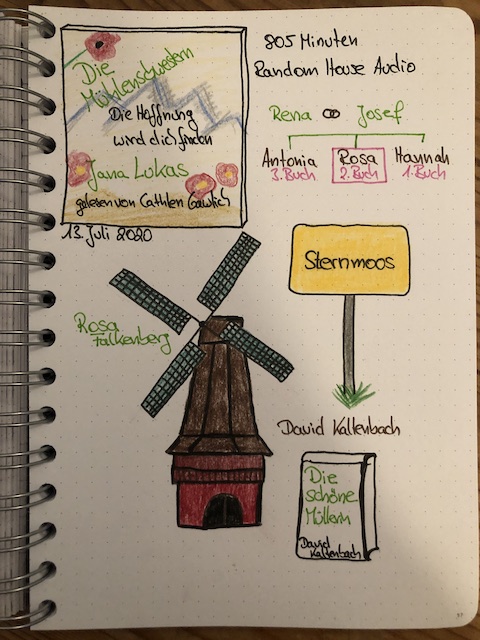 Die
Mühlenschwestern
Die Hoffnung
wird dich finden
Jana Lukas
gelesen von Cathlen Gawlich
13. Juli 2020
805 Minuten
Random House Audio
Rena ∞ Josef
Antonia Rosa Hannah
3. Buch 2. Buch 1. Buch
Sternmoos
Rosa
Falkenberg
David Kaltenbach
Die
schöne
Müllerin
David
Kaltenbach